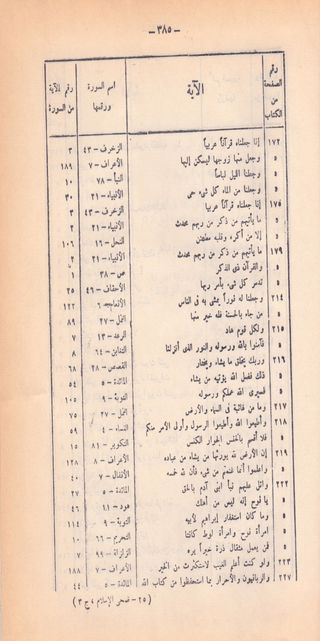 — ٣٨٥ —
رقم الصفحة من الكتاب الآية اسم السورة ورقمها رقم الآية من السورة
١٧٢ إنا جعلناه قرآناً عربياً الزخرف – ٤٣ ٣
« وجعل منها زوجها ليسكن إليها الأعراف – ٧ ١٨٩
« وجعلنا الليل لباساً النبأ – ٧٨ ١٠
« وجعلنا من الماء كل شيء حى الأنبياء – ٢١ ٣٠
١٧٥ إنا جعلناه قرآناً عربيا الزخرف – ٤٣ ٣
« ما يأتيهم من ذكر من ربهم محدث الأنبياء – ٢١ ٢
« إلا من أكره وقلبه مطمئن النحل – ١٦ ١٠٦
١٧٩ ما يأتيهم من ذكر من ربهم محدث الأنبياء – ٢١ ٢
« والقرآن ذى الذكر ص – ٣٨ ١
« تدمر كل شيء بأمر ربها الأحقاف – ٤٦ ٢٥
٢١٤ وجعلنا له نوراً يمشى به فى الناس ١٢٢
« من جاء بالحسنة فله خير منها النمل – ٢٧ ٨٩
٢١٥ ولكل قوم هاد الرعد – ١٣ ٧
« فآمنوا بالله ورسوله والنور الذى أنزلنا التغابن – ٦٤ ٨
٢١٦ وربك يخلق ما يشاء ويختار القصص – ٢٨ ٦٨
« ذلك فضل الله يؤتيه من يشاء المائدة – ٥ ٥٤
« فسيرى الله عملكم ورسوله التوبة – ٩ ١٠٥
٢١٧ وما من غائبة فى السماء والأرض النمل – ٢٧ ٧٥
٢١٨ أطيعوا الله وأطيعوا الرسول وأولى الأمر منكم النساء – ٤ ٥٩
« فلا أقسم بالخنس الجوار الكنس التكوير – ٨١ ١٥
٢١٩ إن الأرض لله يورثها من يشاء من عباده الأعراف – ٧ ١٢٨
« واعلموا أنما غنمتم من شيء فأن لله خمسه الأنفال – ٤٠
٢٢٢ واتل عليهم نبأ ابنى آدم بالحق المائدة – ٥ ٢٧
« يا نوح إنه ليس من أهلك هود – ١١ ٤٦
« وما كان استغفار إبراهيم لأبيه التوبة – ٩ ١١٤
« امرأة نوح وامرأة لوط كانتا التحريم – ٦٦ ١٠
« فمن يعمل مثقال ذرة خيراً يره الزلزلة – ٩٩ ٧
٢٢٣ ولو كنت أعلم الغيب لاستكثرت من الخير الأعراف – ٧ ١٨٨
٢٢٧ والربانيون والأحبار بما استحفظوا من كتاب الله المائدة – ٥ ٤٤
(٢٥ – ضحى الإسلام ، ج ٣)